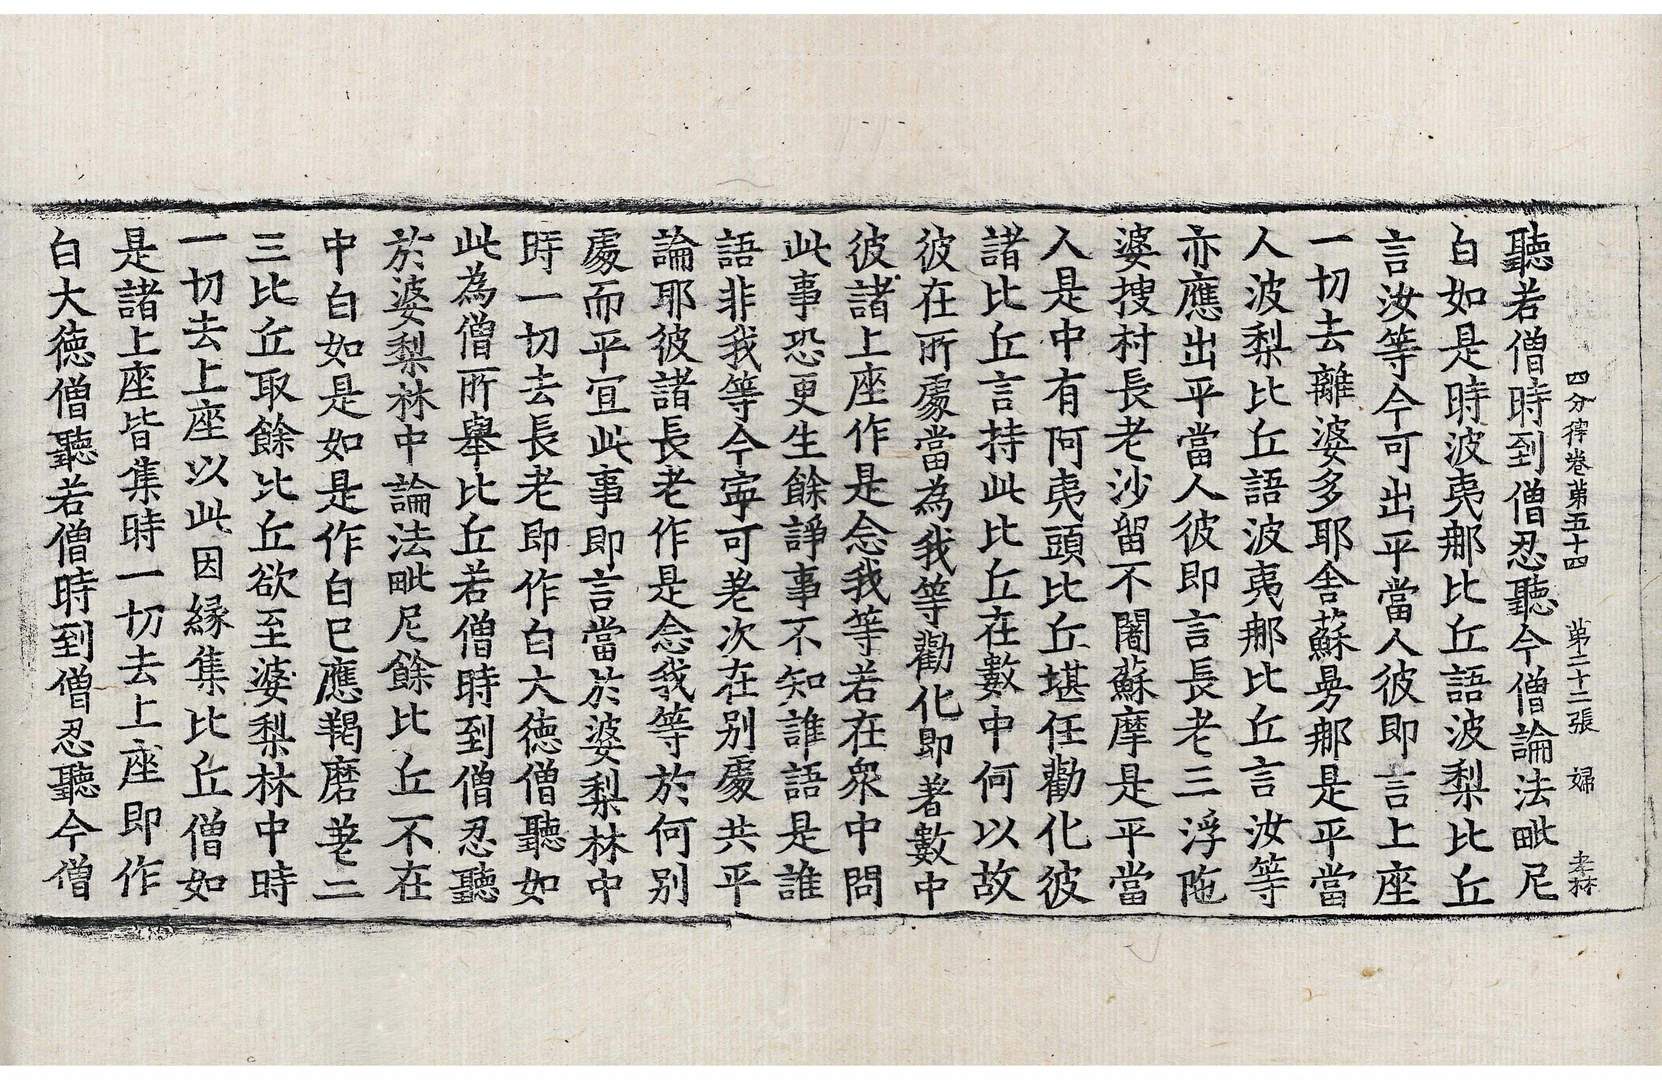 四分律卷第五十四 第二十二張 婦 孝林
聽若僧時到僧忍聽今僧論法毗尼
白如是時波夷那比丘語波梨比丘
言汝等今可出平當人彼即言上座
一切去離婆多耶舍蘇曼那是平當
人波梨比丘語波夷那比丘言汝等
亦應出平當人彼即言長老三浮陁
婆搜村長老沙留不闍蘇摩是平當
人是中有阿夷頭比丘堪任勸化彼
諸比丘言持此比丘在數中何以故
彼在所處當為我等勸化即著數中
彼諸上座作是念我等若在衆中問
此事恐更生餘諍事不知誰語是誰
語非我等今寧可老次在別處共平
論耶彼諸長老作是念我等於何別
處而平宜此事即言當於婆梨林中
時一切去長老即作白大德僧聽如
此為僧所舉比丘若僧時到僧忍聽
於婆梨林中論法毗尼餘比丘不在
中白如是如是作白已應羯磨差二
三比丘取餘比丘欲至婆梨林中時
一切去上座以此因緣集比丘僧如
是諸上座皆集時一切去上座即作
白大德僧聽若僧時到僧忍聽今僧